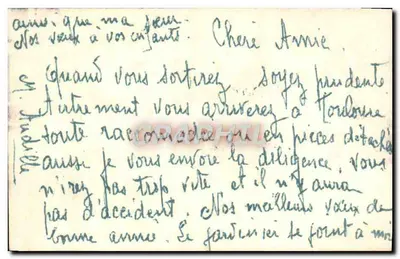 Chère Annie
Quand vous sortirez, soyez prudente
Autrement vous arriverez à Toulouse
toute raccommodée ou en pièces détach
aussi je vous envoie la diligence, vous
n'irez pas trop vite et il n'y aura
pas d'accident. Nos meilleurs vœux de
bonne année. Le jardinier se joint à moi
ainsi que ma sœur.
Nos vœux à vos enfants.